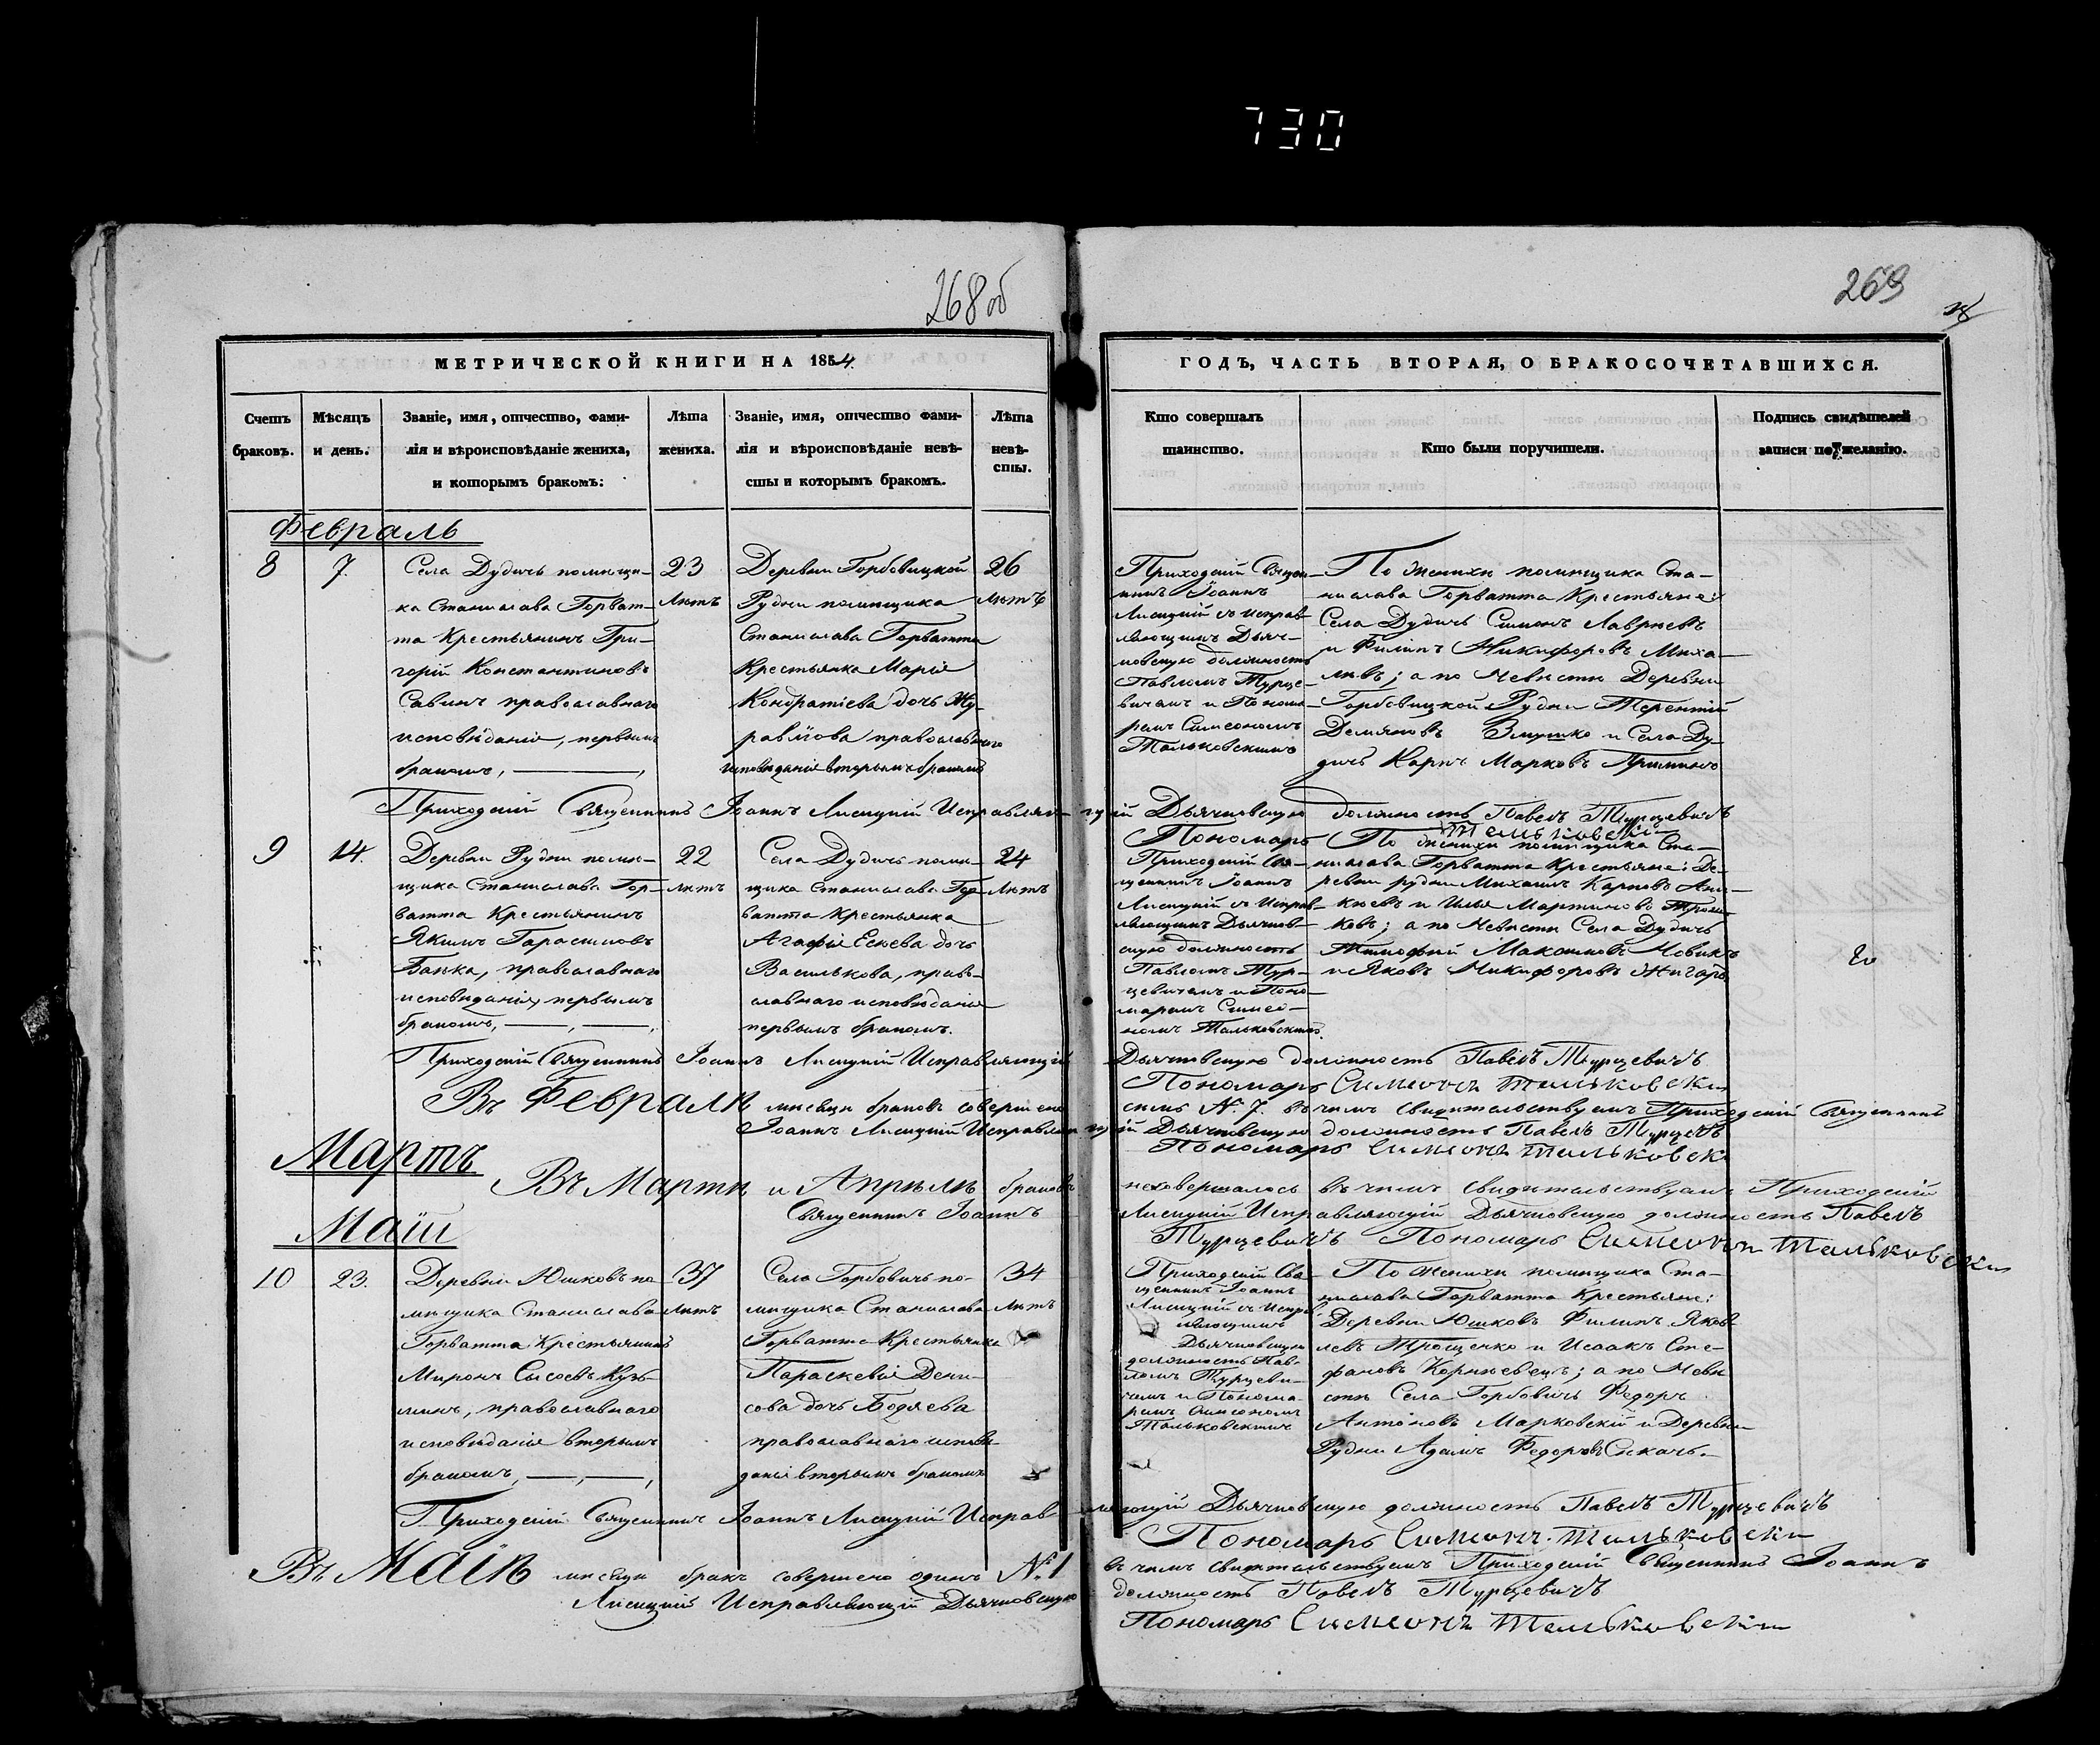 730
268 об
269
МЕТРИЧЕСКОЙ КНИГИ НА 1854
ГОДЪ, ЧАСТЬ ВТОРАЯ, О БРАКОСОЧЕТАВШИХСЯ.
Счетъ браковъ.
Мѣсяцъ и день.
Званіе, имя, отчество, фами-
лія и вѣроисповѣданіе жениха,
и которымъ бракомъ:
Лѣта
жениха.
Званіе, имя, отчество фами-
лія и вѣроисповѣданіе невѣ-
сты и которымъ бракомъ.
Лѣта
невѣ-
сты.
Кто совершалъ
таинство.
Кто были поручители.
Подпись свидѣтелей
записи по желанію.
Февраль
8
7.
Села Дудичь помѣщи-
ка Станислава Горват-
та Крестьянинъ Гри-
горій Константиновъ
Савинъ православнаго
исповѣданія, первымъ
бракомъ,
23
лѣтъ
Деревни Горбовицкой
Рудни помѣщика
Станислава Горватта
Крестьянка Марія
Кондратіева дочь Жу-
равлёва православнаго
исповѣданія вторымъ бракомъ
26
лѣтъ
Приходскій Священ-
никъ Іоаннъ
Лисицкій съ исправ-
ляющимъ Дьяч-
ковскую должность
Павломъ Турце-
вичемъ и Понома-
ремъ Симеономъ
Тальковскимъ
По Женихѣ помѣщика Ста-
нислава Горватта Крестьяне:
Села Дудичь Симонъ Лаврѣевъ
и Филипъ Никифоровъ Миха-
лѣвъ; а по Невѣстѣ Деревни
Горбовицкой Рудни Терентій
Демяновъ Змушко и Села Ду-
дичь Карпъ Марковъ Гришинъ
Приходскій Священникъ Іоаннъ Лисицкій Исправляющій Дьячковскую должность Павелъ Турцевичъ
Пономарь
Тальковски
9
14.
Деревни Рудни помѣ-
щика Станислава Гор-
ватта Крестьянинъ
Якимъ Гарасимовъ
Банка, православнаго
исповѣданія, первымъ
бракомъ,
22
лѣтъ
Села Дудичь помѣ-
щика Станислава Гор-
ватта Крестьянка
Агафія Есиева дочь
Василькова, право-
славнаго исповѣданія
первымъ бракомъ.
24
лѣтъ
Приходскій Свя-
щенникъ Іоаннъ
Лисицкій съ Исправ-
ляющимъ Дьячков-
скую должность
Павломъ Тур-
цевичемъ и Поно-
маремъ Симео-
номъ Тальковскимъ
По Женихѣ помѣщика Ста-
нислава Горватта Крестьяне: Де-
ревни рудни Михаилъ Карповъ
и Илья Мартиновъ
ковъ; а по Невѣстѣ Села Дудичь
Тимофей Максимовъ Новикъ
и Яковъ Никифоровъ Жигарь
Приходскій Священникъ Іоаннъ Лисицкій Исправляющій Дьячковскую должность Павелъ Турцевичъ
Пономарь Симеонъ Тальковски
Въ Февралѣ мѣсяцѣ браковъ совершено семь №. 7. въ чемъ свидѣтельствуемъ Приходскій Священникъ
Іоаннъ Лисицкій Исправляющій Дьячковскую должность Павелъ Турцевичъ
Пономарь Симеонъ Тальковски
Мартъ
Въ Мартѣ и Апрѣлѣ браковъ несовершалось въ чемъ свидѣтельствуемъ Приходскій
Священникъ Іоаннъ Лисицкій Исправляющій Дьячковскую должность Павелъ
Турцевичъ Пономарь Симеонъ Тальковски
Маій
10
23.
Деревни Юшковъ по-
мѣщика Станислава
Горватта Крестьянинъ
Миронъ Сысоевъ Кузь-
минъ, православнаго
исповѣданія вторымъ
бракомъ,
37
лѣтъ
Села Горбовичь по-
мѣщика Станислава
Горватта Крестьянка
Параскевія Дени-
сова дочь Бодяева
православнаго исповѣ-
данія вторымъ бракомъ
34
лѣтъ
Приходскій Свя-
щенникъ Іоаннъ
Лисицкій съ Исправ-
ляющимъ
Дьячковскую
должность Пав-
ломъ Турцеви-
чемъ и Понома-
ремъ Симеономъ
Тальковскимъ
По Женихѣ помѣщика Ста-
нислава Горватта Крестьяне:
Деревни Юшковъ Филипъ Яков-
левъ Трощенко и Исаакъ Сте-
фановъ Корнѣевецъ; а по Невѣ-
стѣ Села Горбовичь Федоръ
Антоновъ Марковскій и Деревни
Рудни Адамъ Федоровъ Сикачь.
Приходскій Священникъ Іоаннъ Лисицкій Исправляющій Дьячковскую должность Павелъ Турцевичъ
Пономарь Симеонъ Тальковски
Въ Маіѣ мѣсяцѣ бракъ совершено одинъ №. 1 въ чемъ свидѣтельствуемъ Приходскій Священникъ Іоаннъ
Лисицкій Исправляющій Дьячковскую должность Павелъ Турцевичъ
Пономарь Симеонъ Тальковски